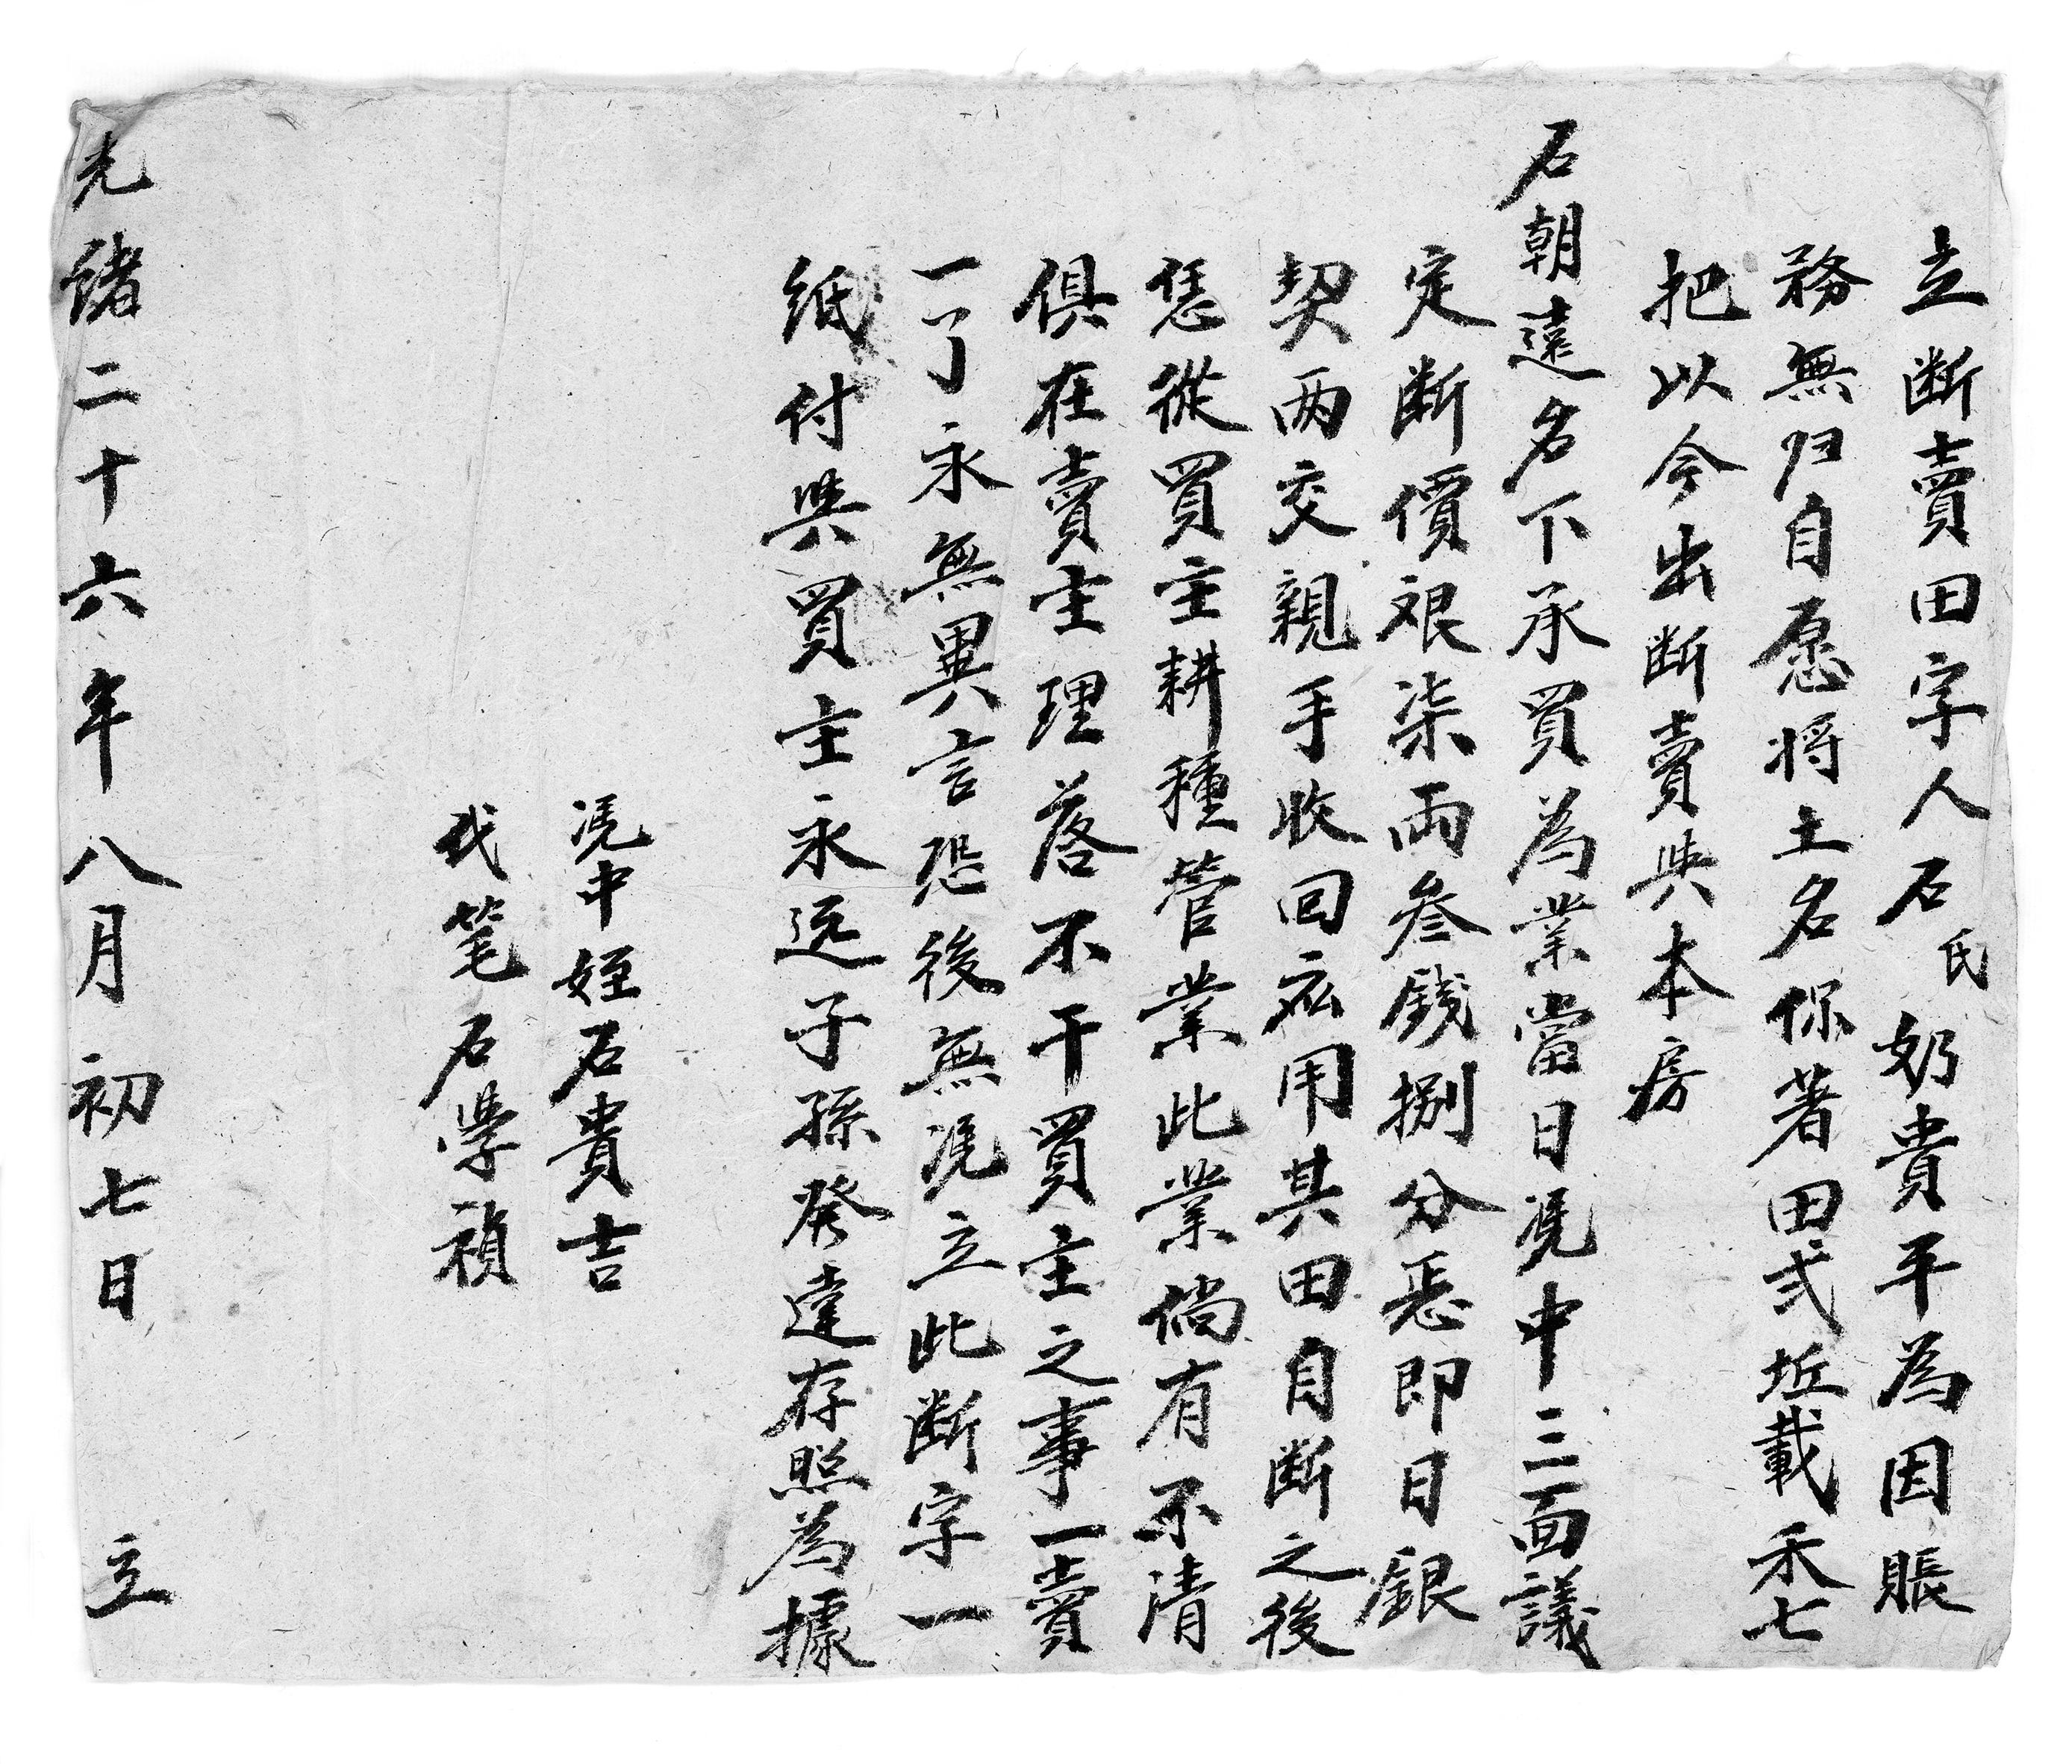 立断賣田字人石氏奶貴平為因賬
務無归自愿将土名你著田弍坵載禾七
把以今出断賣與本房
石朝遠名下承買為業當日凴中三面議
定断價艮柒両叁錢捌分悉即日銀
契两交親手收回应用其田自断之後
恁從買主耕種管業此業倘有不清
俱在賣主理落不干買主之事一賣
一了永無異言恐後無凴立此断字一
紙付與買主永远子孫發達存照為據
凴中姪石貴吉
代笔石學禎
光緒二十六年八月初七日 立